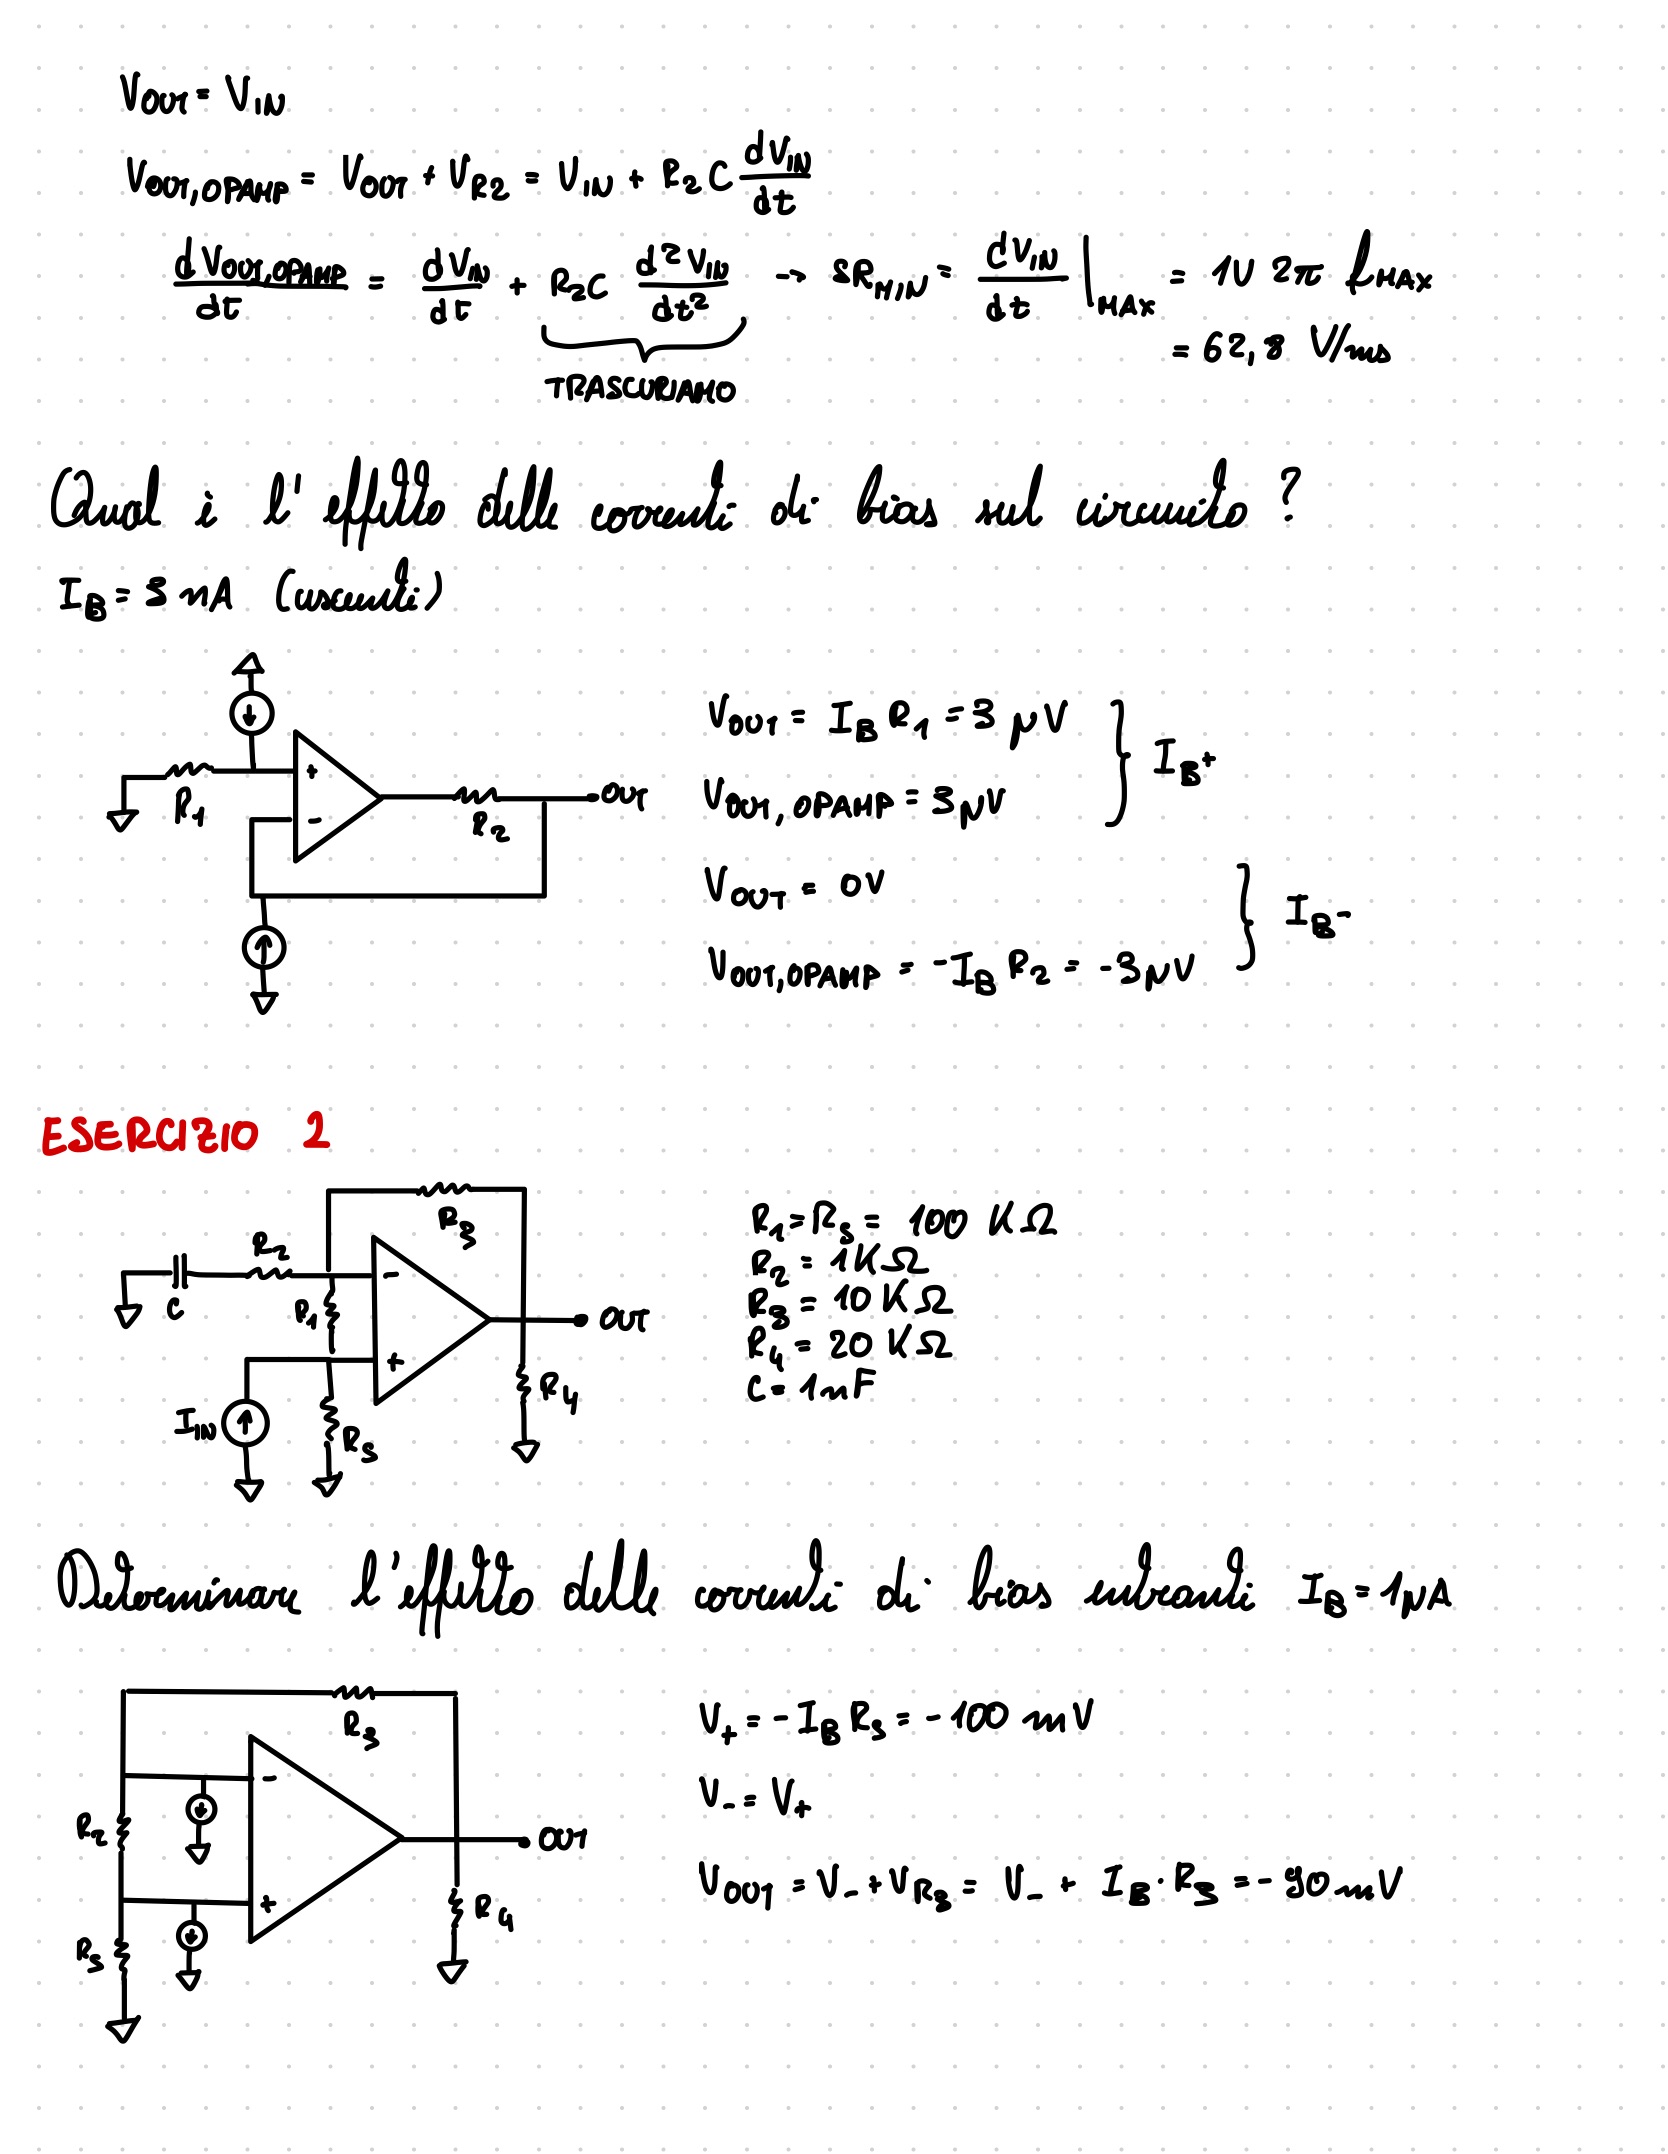 VOUT = VIN
VOUT,OPAMP = VOUT + VR2 = VIN + R2 C dVIN/dt
dVOUT,OPAMP/dt = dVIN/dt + R2C d²VIN/dt² → SRMIN = dVIN/dt |MAX = 1V 2π fMAX
= 62,8 V/ms
TRASCURIAMO
Qual è l'effetto delle correnti di bias sul circuito ?
IB = 3 nA (uscenti)
+
-
R1
R2
OUT
VOUT = IB R1 = 3 μV
VOUT, OPAMP = 3μV
IB+
VOUT = 0V
VOUT,OPAMP = -IB R2 = -3μV
IB-
ESERCIZIO 2
R3
R2
C
R1
-
+
OUT
IIN
R5
R4
R1=R5 = 100 KΩ
R2 = 1KΩ
R3 = 10 KΩ
R4 = 20 KΩ
C = 1nF
Determinare l'effetto delle correnti di bias entranti IB = 1μA
R3
-
R2
+
OUT
R4
R5
V+ = -IB R5 = -100 mV
V- = V+
VOUT = V- + VR3 = V- + IB · R3 = -90 mV